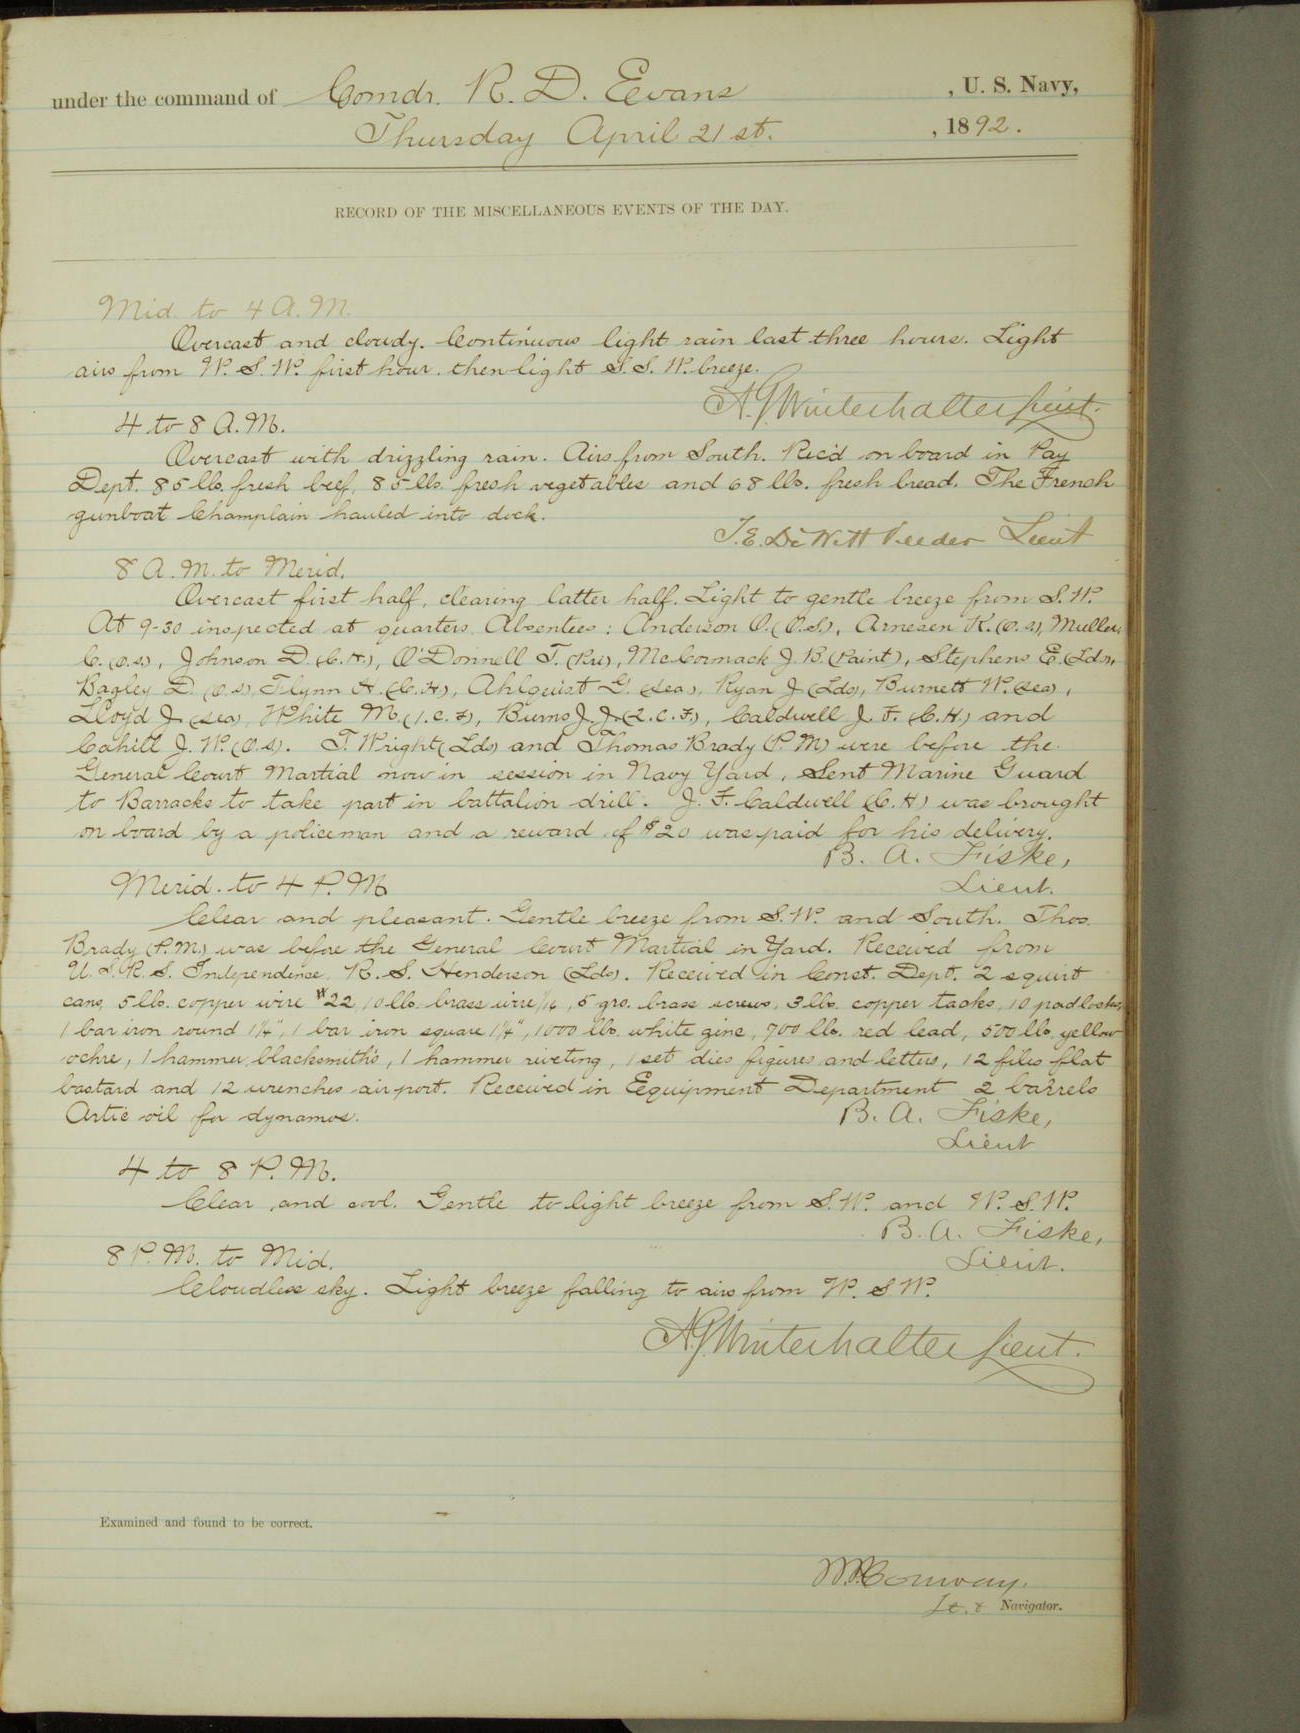 under the command of Comdr. R. D. Evans , U. S. Navy,
Thursday April 21st. , 1892.
RECORD OF THE MISCELLANEOUS EVENTS OF THE DAY.
Mid. to 4 A. M.
Overcast and cloudy. Continuous light rain last three hours. Light
airs from W. S. W. first hour. then light S. S. W. breeze.
A. G. Winterhalter Lieut.
4 to 8 A. M.
Overcast with drizzling rain. Airs from South. Rec'd on board in Pay
Dept. 85 lbs. fresh beef, 85 lbs. fresh vegetables and 68 lbs. fresh bread. The French
gunboat Champlain hauled into dock.
T. E. DeWitt Veeder Lieut
8 A. M. to Merid.
Overcast first half, clearing latter half. Light to gentle breeze from S. W.
At 9-30 inspected at quarters. Absentees: Anderson O. (O.S.), Arnesen K. (O.S.), Muller
C. (O.S.), Johnson D. (C.H.), O'Donnell T. (Pri), McCormack J. B. (Paint), Stephens E. (Lds),
Bagley D. (O.S), Flynn H. (C.H), Ahlquist G. (Sea), Ryan J (Lds), Burnett W. (Sea),
Lloyd J. (Sea), White M. (1.C.F), Burns J. J. (2.C.F.), Caldwell J. F. (C.H.) and
Cahill J. W. (O.S). T. Wright (Lds) and Thomas Brady (P.M) were before the
General Court Martial now in session in Navy Yard. Sent Marine Guard
to Barracks to take part in battalion drill. J. F. Caldwell (C.H) was brought
on board by a policeman and a reward of $20 was paid for his delivery.
B. A. Fiske,
Lieut.
Merid. to 4 P. M
Clear and pleasant. Gentle breeze from S. W. and South. Thos.
Brady (P.M.) was before the General Court Martial in Yard. Received from
U. S. R. S. Independence, R. S. Henderson (Lds). Received in Const. Dept. 2 squirt
cans, 5 lbs. copper wire #22, 10 lbs. brass wire 1/16, 5 gro. brass screws, 3 lbs. copper tacks, 10 padlocks,
1 bar iron round 1 1/4", 1 bar iron square 1 1/4", 1000 lbs. white zinc, 700 lbs. red lead, 500 lbs. yellow
ochre, 1 hammer, blacksmith's, 1 hammer riveting, 1 set dies figures and letters, 12 files flat
bastard and 12 wrenches airport. Received in Equipment Department 2 barrels
Artic oil for dynamos.
B. A. Fiske,
Lieut
4 to 8 P. M.
Clear and cool. Gentle to light breeze from S. W. and W. S. W.
B. A. Fiske,
Lieut.
8 P. M. to Mid.
Cloudless sky. Light breeze falling to airs from W. S W.
A. G. Winterhalter Lieut.
Examined and found to be correct.
W. P. Conway.
Lt. & Navigator.